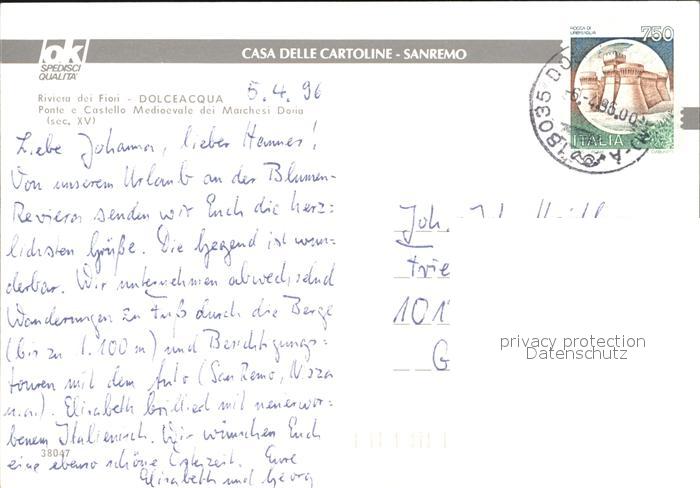 ok
SPEDISCI
QUALITA'
CASA DELLE CARTOLINE - SANREMO
ROCCA DI
URBISAGLIA
750
ITALIA
18035 DO
6.4.96.00
Riviera dei Fiori - DOLCEACQUA
Ponte e Castello Medioevale dei Marchesi Doria
(sec. XV)
5.4.96
Liebe Johanna, lieber Hannes!
Von unserem Urlaub an der Blumen-
Reviera senden wir Euch die herz-
lichsten Grüße. Die Gegend ist wun-
derbar. Wir unternehmen abwechselnd
Wanderungen zu Fuß durch die Berge
(bis zu 1.100 m) und Besichtigungs-
touren mit dem Auto (San Remo, Nizza
u.a.). Elisabeth brilliert mit neuerwor-
benem Italienisch. Wir wünschen Euch
eine ebenso schöne Osterzeit. Eure
Elisabeth und Georg
38047
Joh.
101
G
privacy protection
Datenschutz